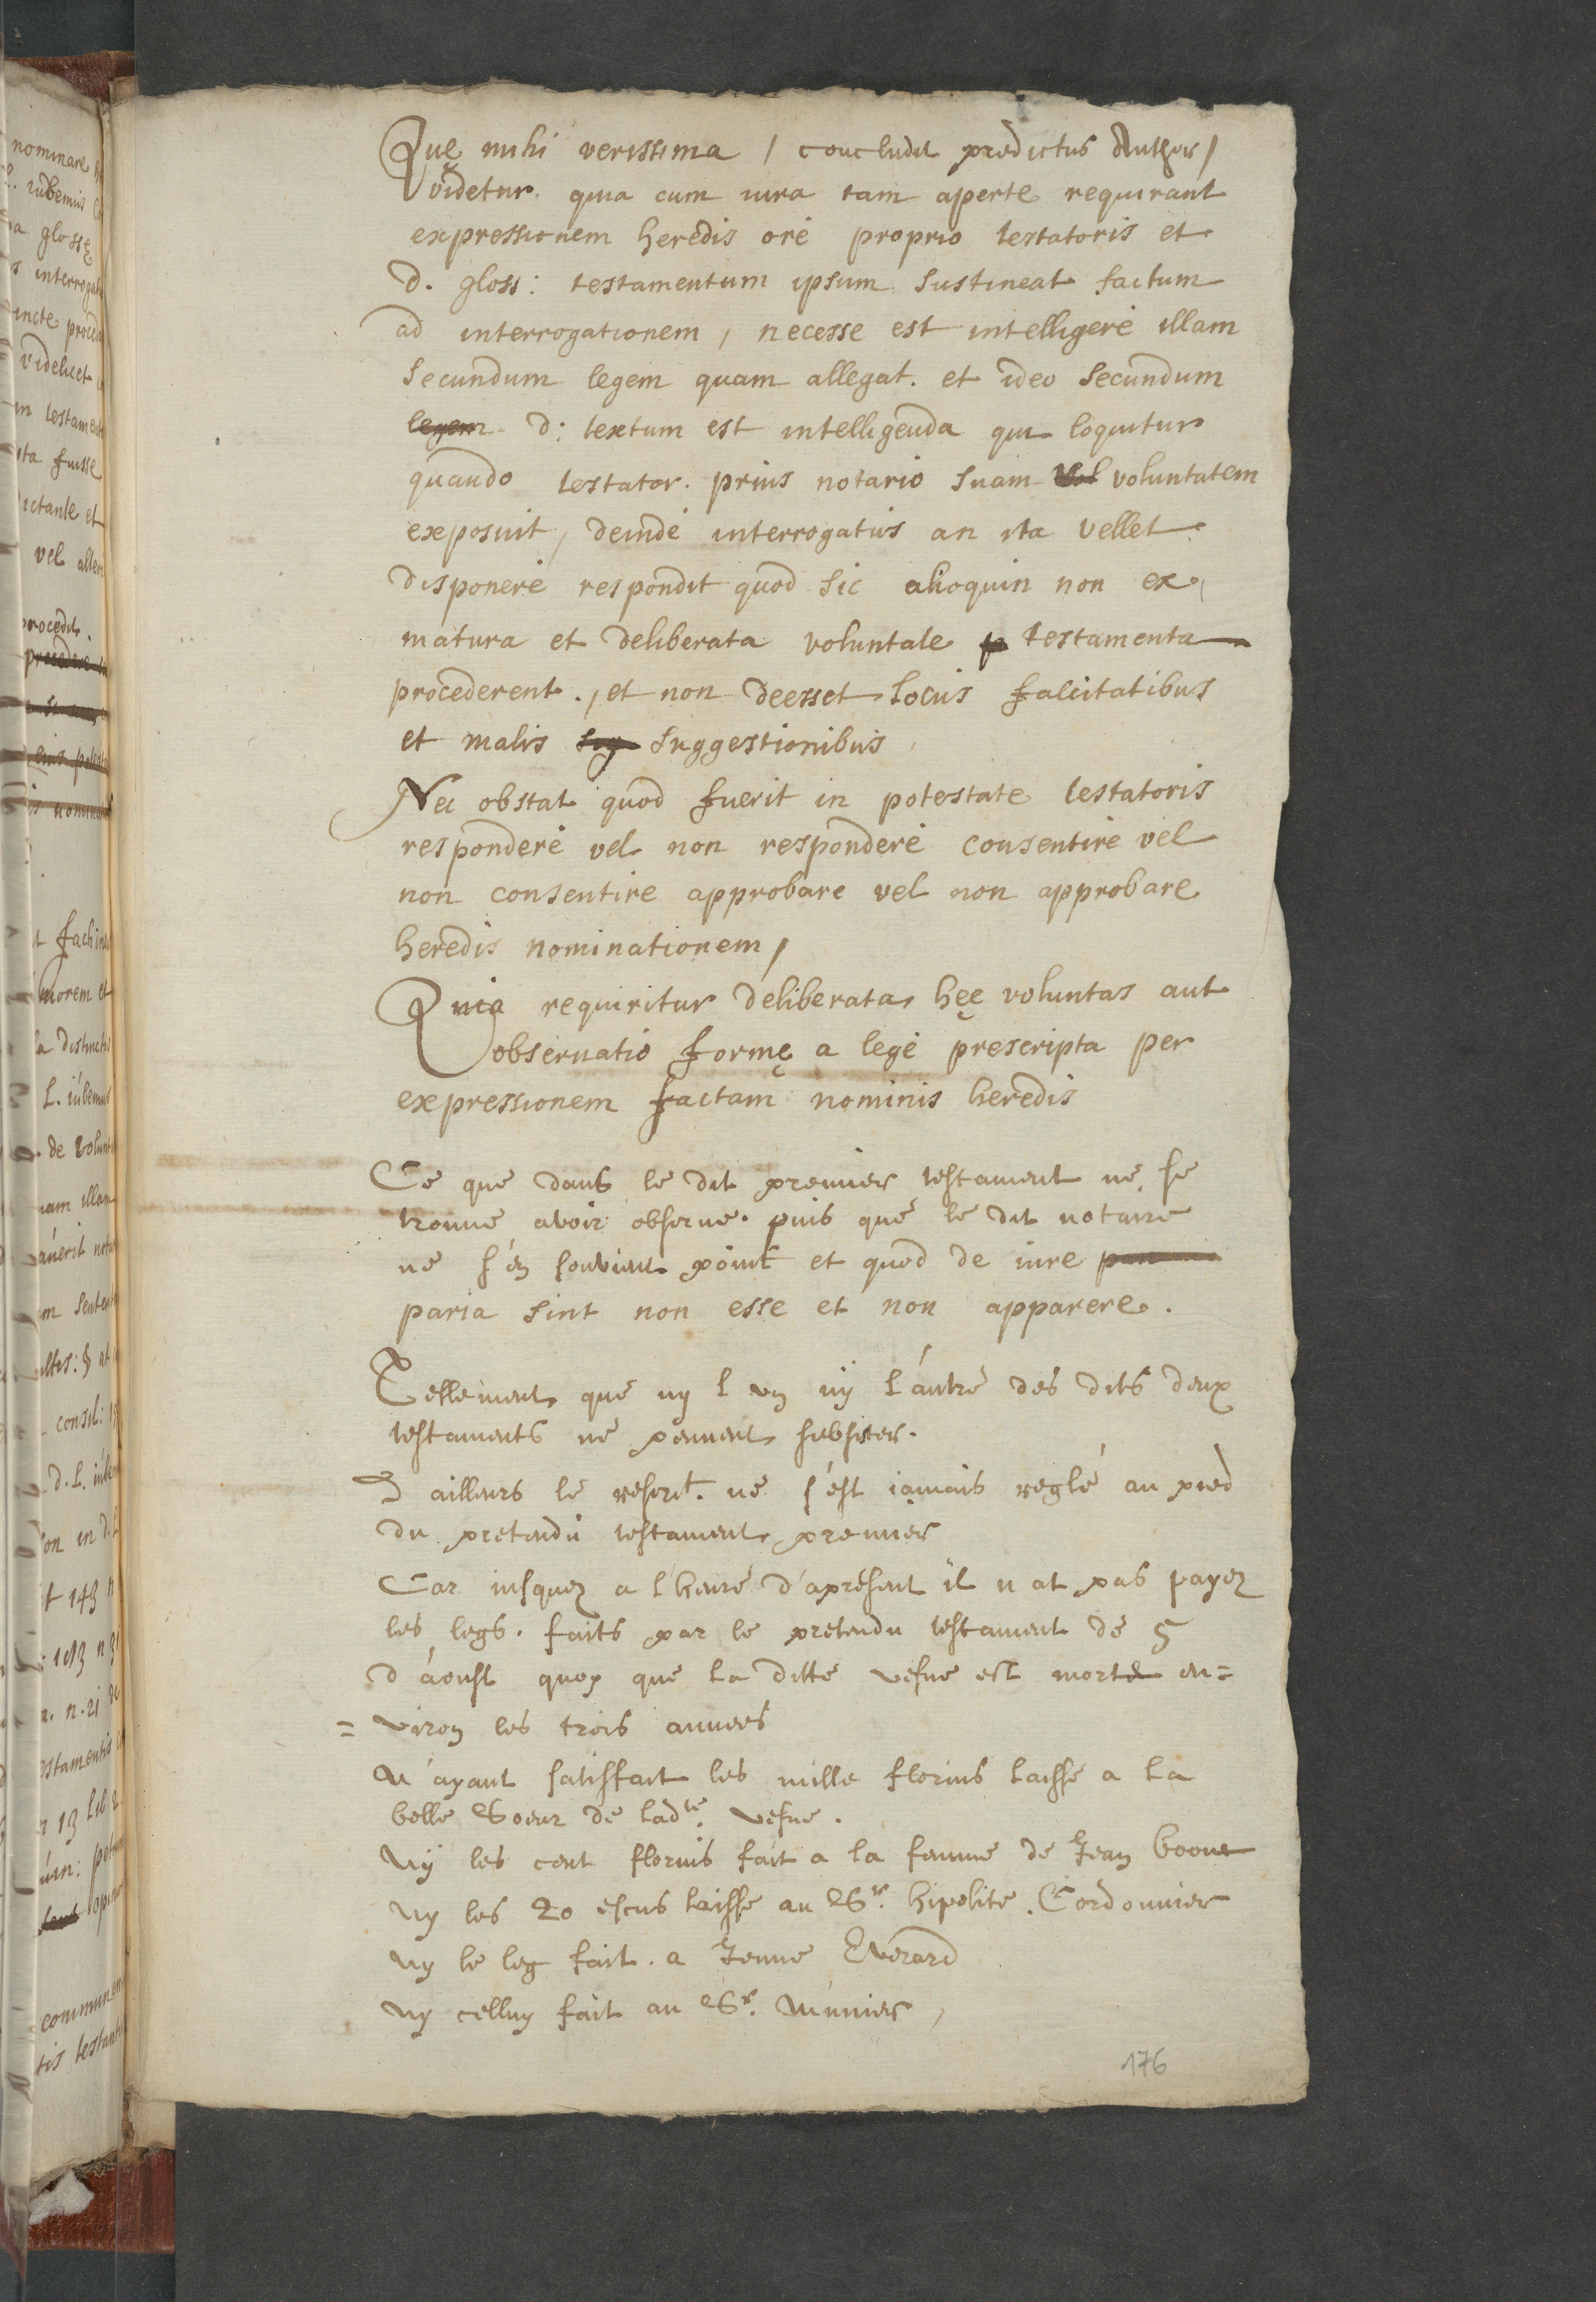 Quę mihi verissima / concludit predictus Author /
videtur. quia cum iura tam aperte requirant
expressionem heredis ore proprio testatoris et
d. gloss: testamentum ipsum sustineat factum
ad interrogationem, necesse est intelligere illam
secundum legem quam allegat. et ideo secundum
legem d: textum est intelligenda qui loquitur
quando testator. prius notario suam vol voluntatem
exposuit, deinde interrogatus an ita vellet
disponere respondit quod sic alioquin non ex
matura et deliberata voluntate p testamenta
procederent., et non deesset locus falcitatibus
et malis sug suggestionibus,
Nec obstat quod fuerit in potestate testatoris
respondere vel non respondere consentire vel
non consentire approbare vel non approbare
heredis nominationem,
Quia requiritur deliberata hęc voluntas aut
observatio formę a lege prescripta per
expressionem factam nominis heredis
Ce que dans le dit premier testament ne se
trouue avoir obserue. puis que le dit notaire
ne s'en souvient point et quod de iure
paria sint non esse et non apparere.
Tellement que ny l un ny l'autre des dits deux
testaments ne peuuent subsister.
D ailleurs le rescrit. ne s'est iamais reglé au pied
du pretendu testament premier
Car iusquez a l'heure d'apresent il n at pas payez
les legs. faits par le pretendu testament de 5
d'aoust quoy que la ditte vefue est morte en=
=viron les trois annees
N'ayant satisfait les mille florins laisse a la
belle Soeur de ladte. vefue.
Ny les cent florins fait a la femme de Jean boone
Ny les 20 escus laisse au Sr. hipolite. Cordonnier
Ny le leg fait. a Jenne Everard
Ny celluy fait au Sr. Munier,
176